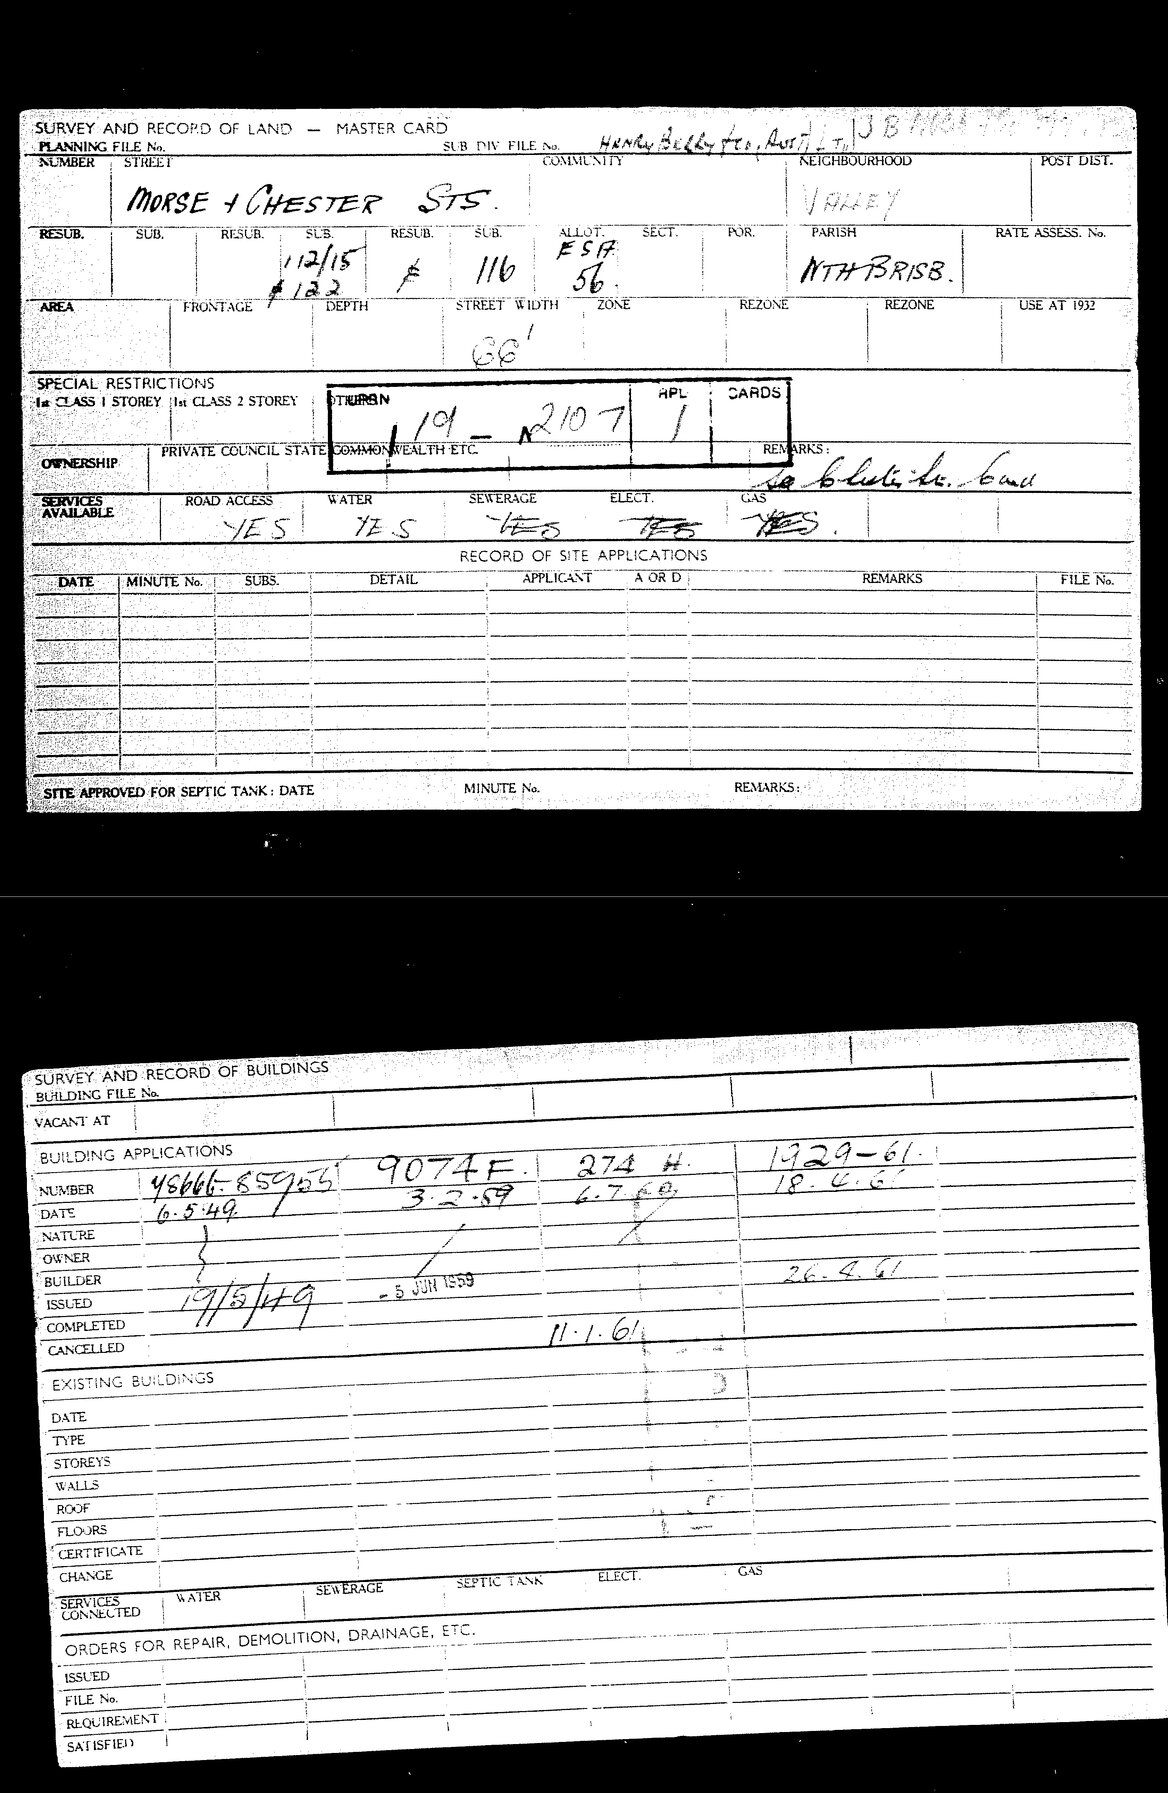 SURVEY AND RECORD OF LAND — MASTER CARD
PLANNING FILE No. SUB DIV FILE No. HENRY BERRY & CO, AUST LTD
NUMBER STREET COMMUNITY NEIGHBOURHOOD POST DIST.
MORSE & CHESTER STS. VALLEY
RESUB. SUB. RESUB. SUB. RESUB. SUB. ALLOT. SECT. POR. PARISH RATE ASSESS. No.
112/15 & 116 ESA NTH BRISB.
& 122 56.
AREA FRONTAGE DEPTH STREET WIDTH ZONE REZONE REZONE USE AT 1932
66'
SPECIAL RESTRICTIONS
1st CLASS 1 STOREY 1st CLASS 2 STOREY OTHERS
URBN APL CARDS
19 — 2107 1
OWNERSHIP PRIVATE COUNCIL STATE COMMONWEALTH ETC. REMARKS:
See Chester St. Card
SERVICES AVAILABLE ROAD ACCESS WATER SEWERAGE ELECT. GAS
YES YES YES YES YES.
RECORD OF SITE APPLICATIONS
DATE MINUTE No. SUBS. DETAIL APPLICANT A OR D REMARKS FILE No.
SITE APPROVED FOR SEPTIC TANK: DATE MINUTE No. REMARKS:
SURVEY AND RECORD OF BUILDINGS
BUILDING FILE No.
VACANT AT
BUILDING APPLICATIONS
NUMBER 48666-85955 9074F. 274 H. 1929-61.
DATE 6.5.49. 3.2.59 6.7.60 18.4.61
NATURE
OWNER
BUILDER
ISSUED 19/5/49 -5 JUN 1959 26.4.61
COMPLETED
CANCELLED 11.1.61
EXISTING BUILDINGS
DATE
TYPE
STOREYS
WALLS
ROOF
FLOORS
CERTIFICATE
CHANGE
SERVICES CONNECTED WATER SEWERAGE SEPTIC TANK ELECT. GAS
ORDERS FOR REPAIR, DEMOLITION, DRAINAGE, ETC.
ISSUED
FILE No.
REQUIREMENT
SATISFIED